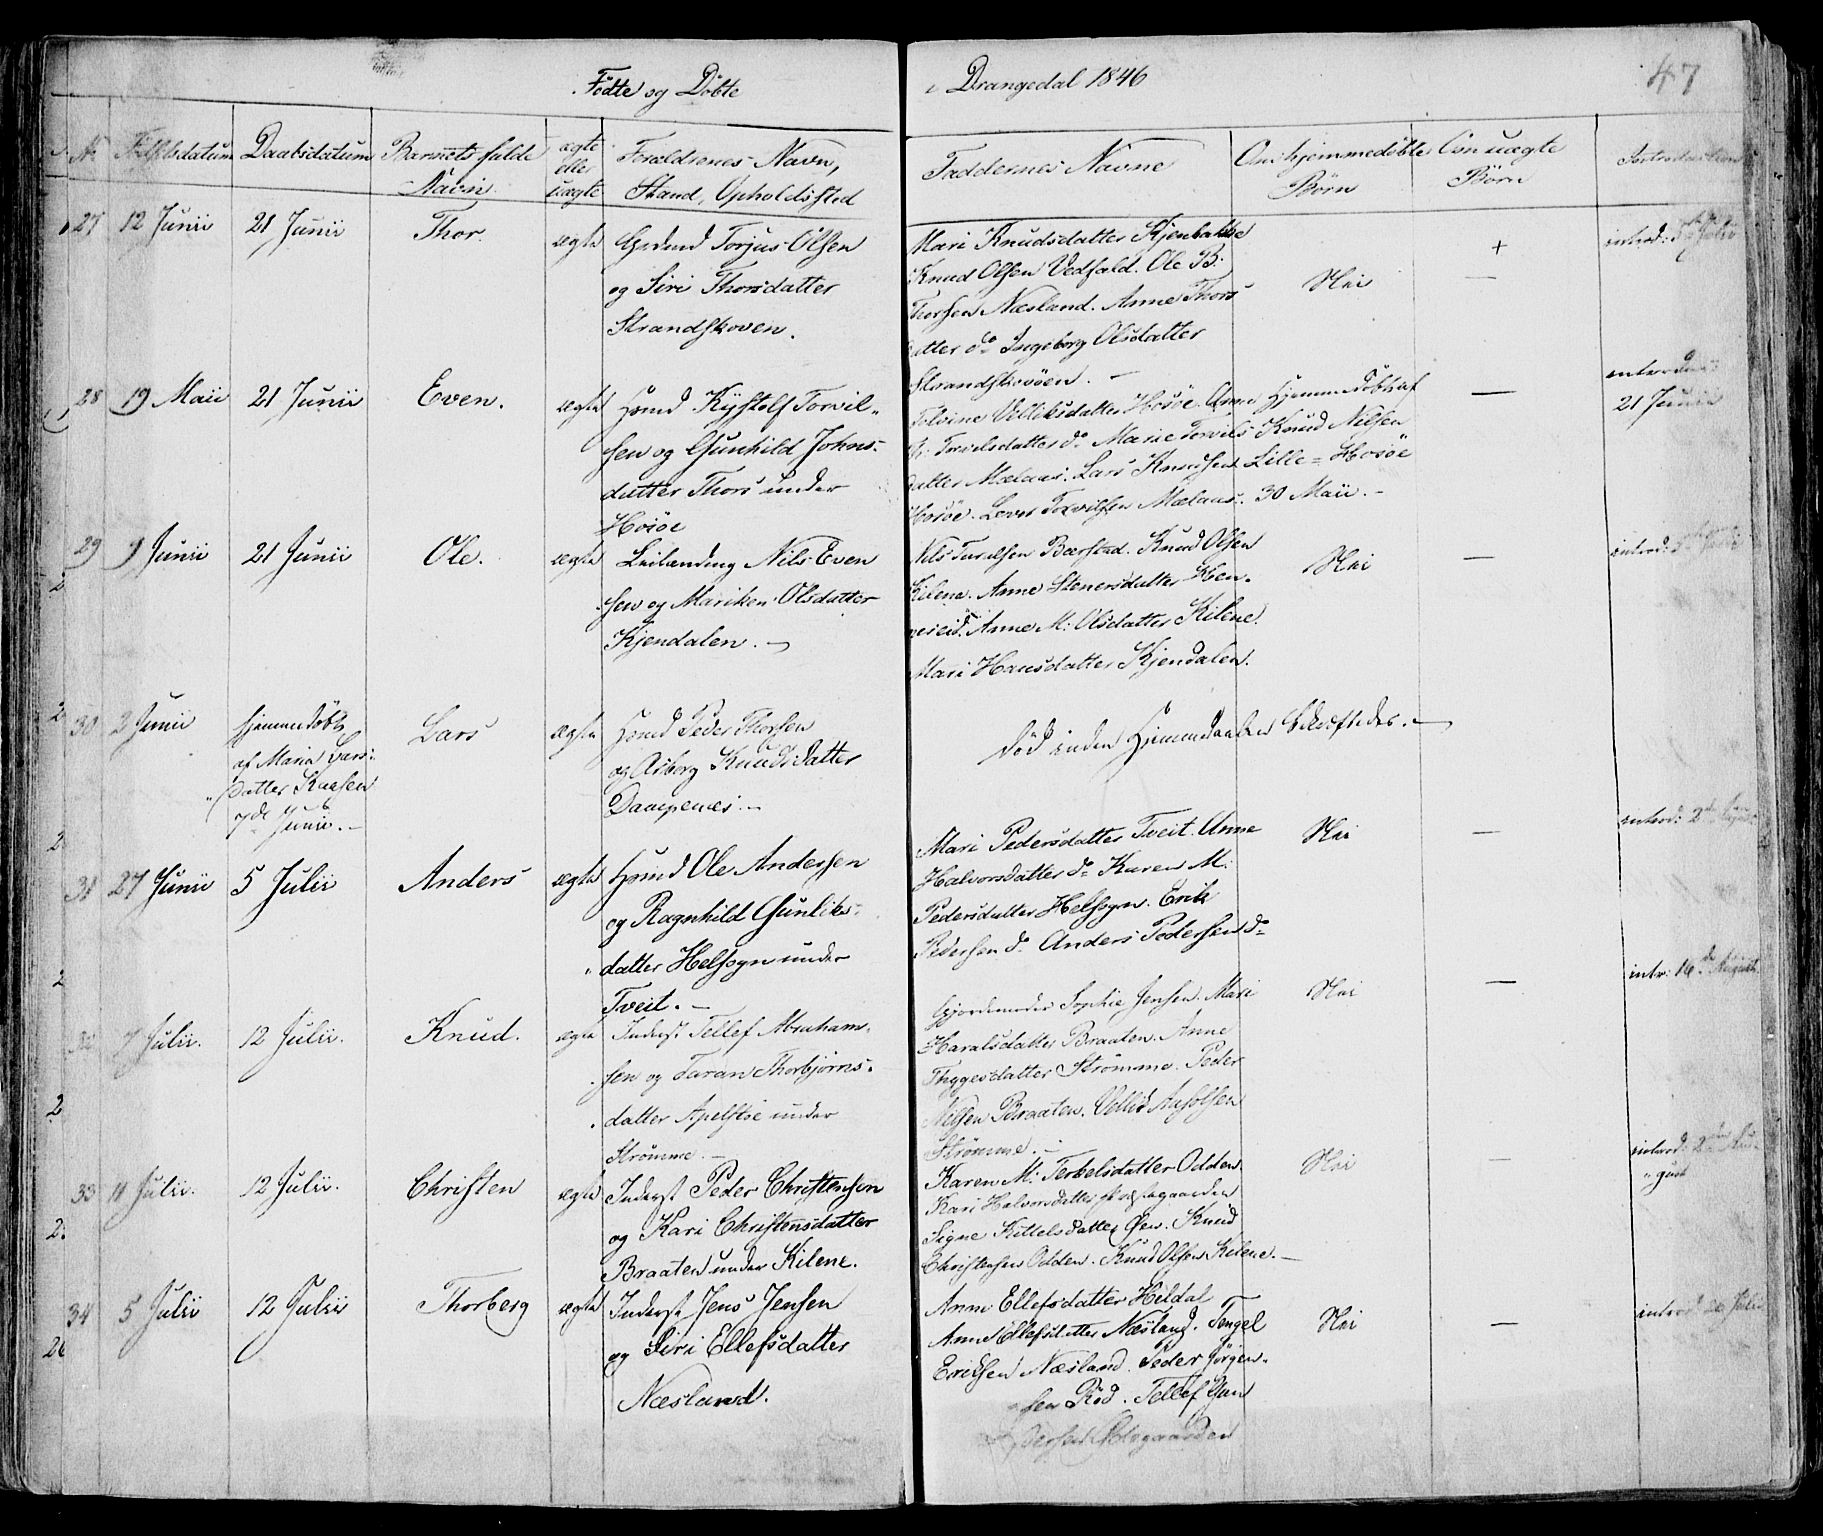 Fødte og Døbte
i Drangedal 1846
47
No Fødselsdatum Daabsdatum Barnets fulde Navn ægte eller uægte Foraldrenes Navn, Stand, Opholdssted
Faddernes Navne Om hjemmedøbte Børn Om uægte Børn Introduction
27 12 Junii 21 Junii Thor ægte Grdmd Torjus Olsen
og Siri Thorsdatter
Strandskoven.
Mari Knudsdatter Kjenbakke
Knud Olsen Vedfald. Ole B:
Thorsen Næsland. Anne Thors
datter do Ingeborg Olsdatter
Strandskovøen. —
Nei
+
—
introd: Julii
28 19 Maii 21 Junii Even. ægte Hsmd Kystolf Torvil-
sen og Gunhild Johns-
datter Thors under
Hosøe
Vetliksdatter Hosøe. Anne
Torvilsdatter do Marie Torvils
datter Mælaas. Lars Knudsen
Hosøe. Lever Torvilsen Mælaas.
Hjemmedøbt af
Knud Nilsen
Lille-Hosøe
30 Maii. -
—
introd:
21 Junii
29 9 Junii 21 Junii Ole. ægte Leilænding Nils Even
sen og Mariken Olsdatter
Kjendalen. —
Nils Bærstad. Knud Olsen
Kilene. Anne Stenersdatter Hen-
neseid. Anne M: Olsdatter Kilene.
Mari Hansdatter Kjendalen.
Nei
—
introd:
30 2 Junii hjemmedøbt
af Maria Lars-
datter Kaasen
7de Junii. -
Lars ægte Hsmd Peder Thorsen
og Asborg Knudsdatter
Dampenæs. -
Død inden Hjemmedaaben bekræftedes. —
31 27 Junii 5 Julii Anders ægte Hsmd Ole Andersen
og Ragnhild Gunliks-
datter Helsogn under
Tveit. —
Mari Pedersdatter Tveit. Anne
Halvorsdatter do Karen M:
Pedersdatter Helsogn. Erik
Pedersen do Anders Pedersen do
Nei
—
introd: 2
32 7 Julii. 12 Julii. Knud. ægte Inderst Tellef Abraham-
sen og Taran Thorbjørns-
datter Apelstøe under
Strømme. —
Gjordemoder Sophie Jensen. Mari
Haralsdatter Braaten. Anne
Thygesdatter Strømme. Peder
Nilsen Braaten.
Strømme. —
Nei
—
intr: 16de August
33 11 Julii. 12 Julii. Christen ægte Inderst Peder Christensen
og Kari Christensdatter
Braaten under Kilene.
Karen M: Terkelsdatter Odden.
Kari Halvorsdatter Præstegaarden
Signe Kittelsdatter Øen. Knud
Christensen Odden. Knud Olsen Kilene. —
Nei
—
introd: 2den Au-
gust
34 5 Julii 12 Julii Thorberg ægte Inderst Jens Jensen
og Siri Ellefsdatter
Næsland.
Anne Ellefsdatter Heldal
Anne Ellefsdatter Næsland. Tengel
Eriksen Næsland. Peder Jørgen-
sen Rød. Tellef Gun
dersen
Nei
—
introd: Julii